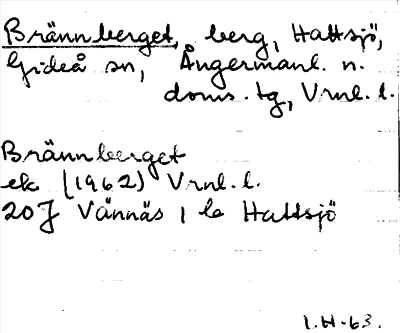 Brännberget, berg, Hattsjö,
Gideå sn, Ångermanl. n.
doms. tg, Vrnl. l.
Brännberget
ek (1962) Vrnl. l.
20J Vännäs 1 c Hattsjö
I.H-63.